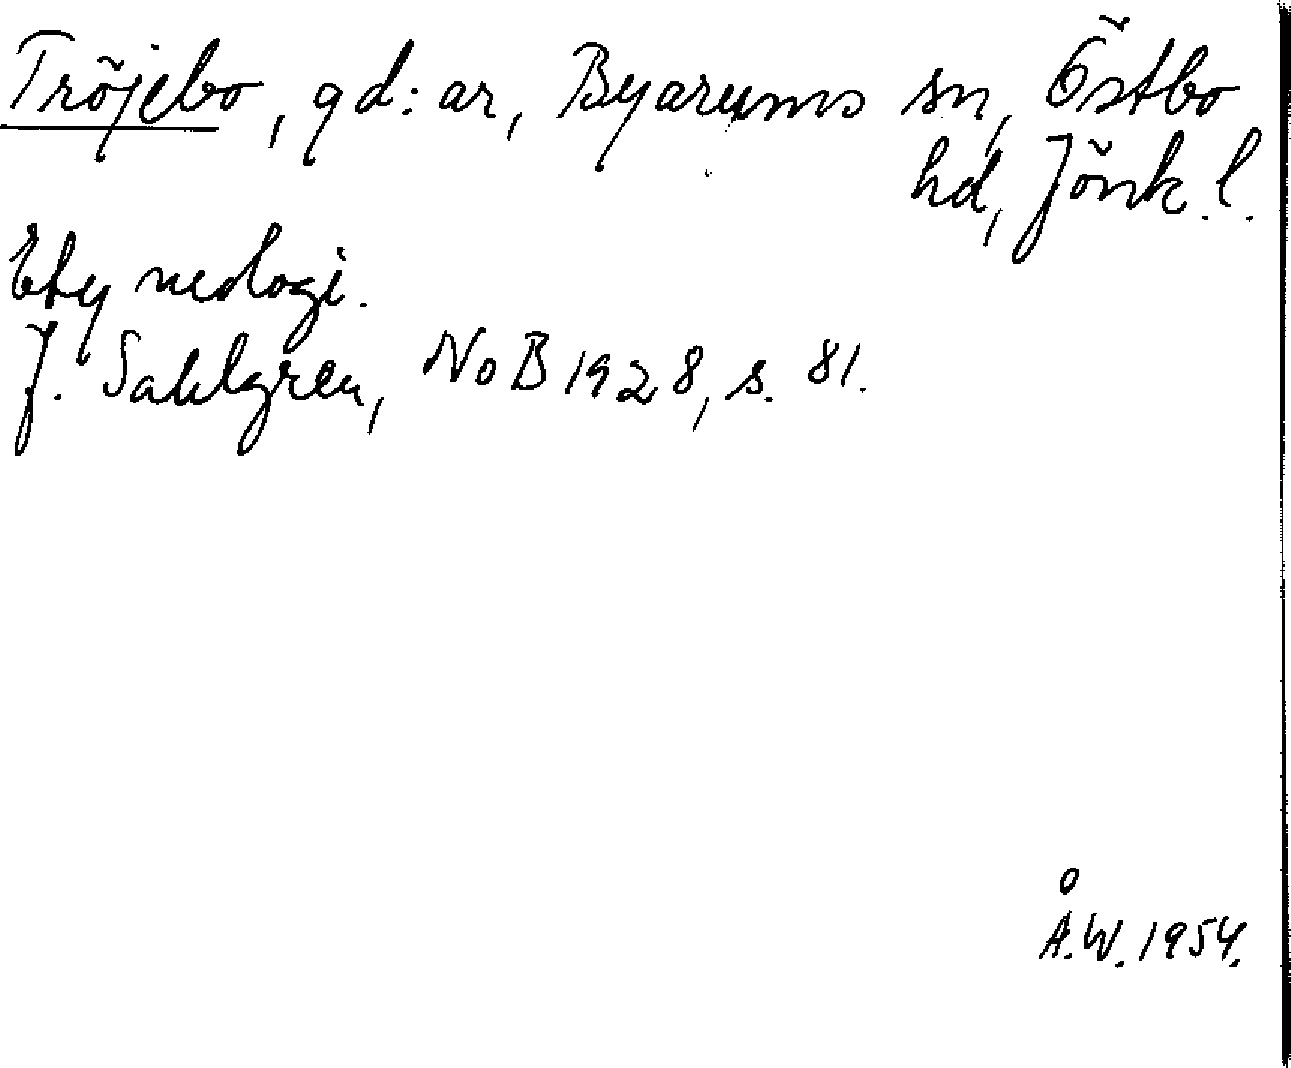 Tröjebo, gd:ar, Byarums sn, Östbo
hd, Jönk. l.
Etymologi.
J. Sahlgren, NoB 1928, s. 81.
Å.W. 1954.